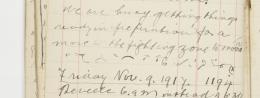 We are busy getting things
ready in preperation for a
move to the fighting zone
Friday Nov. 9. 1917. 1194
Reveille 6 a.m